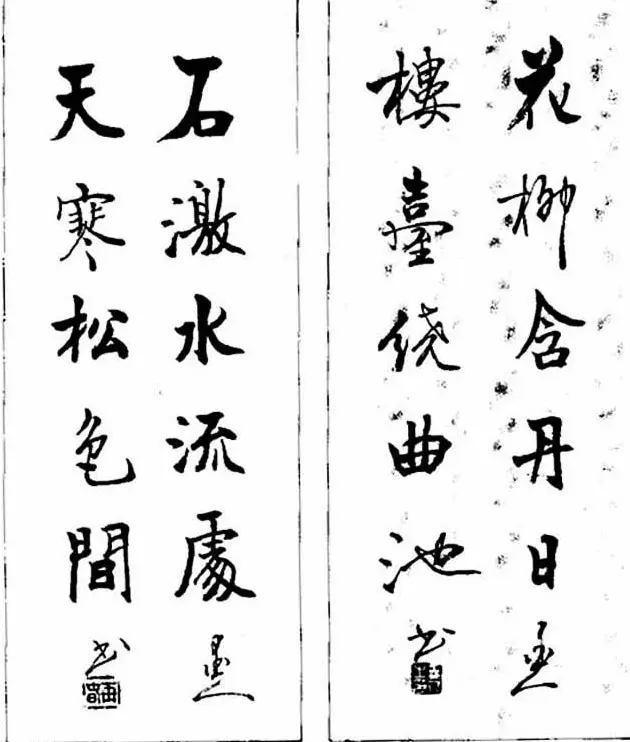 花柳含丹日
樓臺绕曲池
书
石激水流處
天寒松色間
书